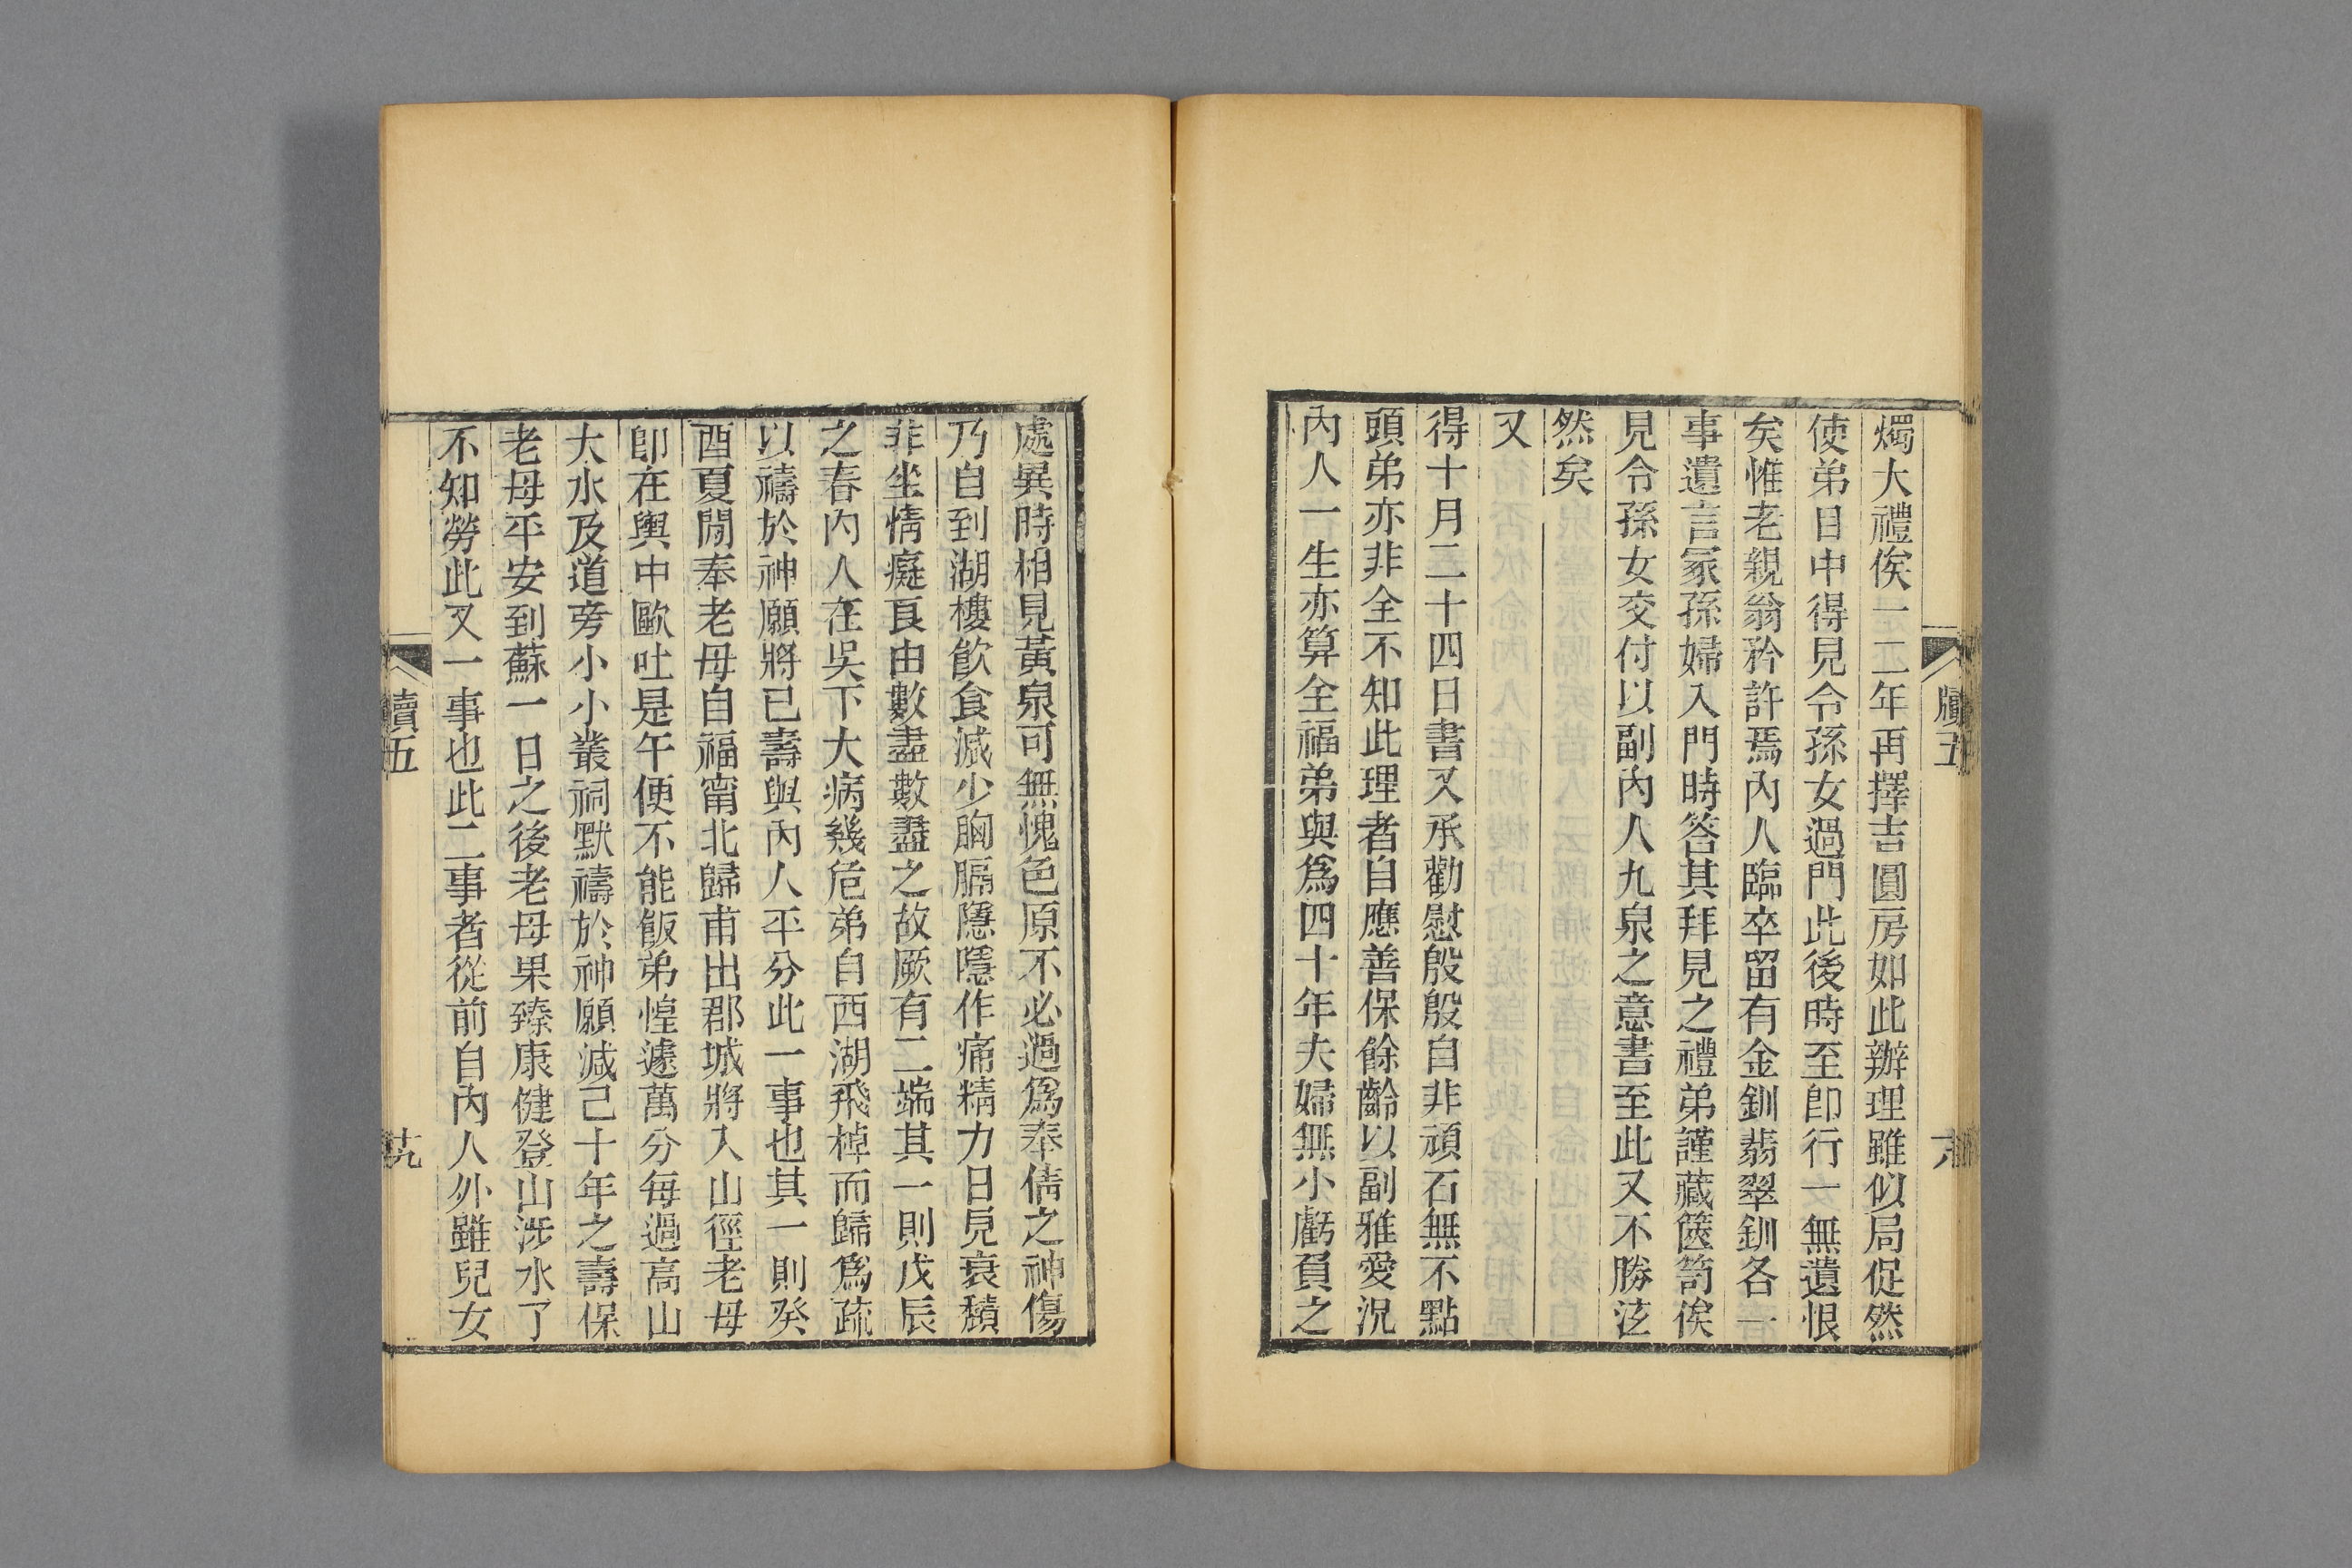 燭大禮俟一二年再擇吉圓房如此辦理雖似局促然
使弟日中得見令孫女過門此後時至卽行一無遺恨
矣惟老親翁矜許焉內人臨卒留有金釧翡翠釧各一
事遺言冢孫婦入門時答其拜見之禮弟謹藏篋笥俟
見令孫女交付以副內人九泉之意書至此又不勝泫
然矣
又
得十月二十四日書又承勸慰殷殷自非頑石無不點
頭弟亦非全不知此理者自應善保餘齡以副雅愛況
內人一生亦算全福弟與爲四十年夫婦無小虧負之
處異時相見黃泉可無愧色原不必過爲奉倩之神傷
乃自到湖樓飮食減少胸膈隱隱作痛精力日見衰穨
非坐情癡良由數盡數盡之故厥有二端其一則戊辰
之春內人在吳下大病幾危弟自西湖飛棹而歸爲疏
以禱於神願將已壽與內人平分此一事也其一則癸
酉夏閒奉老母自福甯北歸甫出郡城將入山徑老母
卽在輿中歐吐是午便不能飯弟惶遽萬分每過高山
大水及道旁小小叢祠默禱於神願減己十年之壽保
老母平安到蘇一日之後老母果臻康健登山涉水了
不知勞此又一事也此二事者從前自內人外雖兒女
牘五